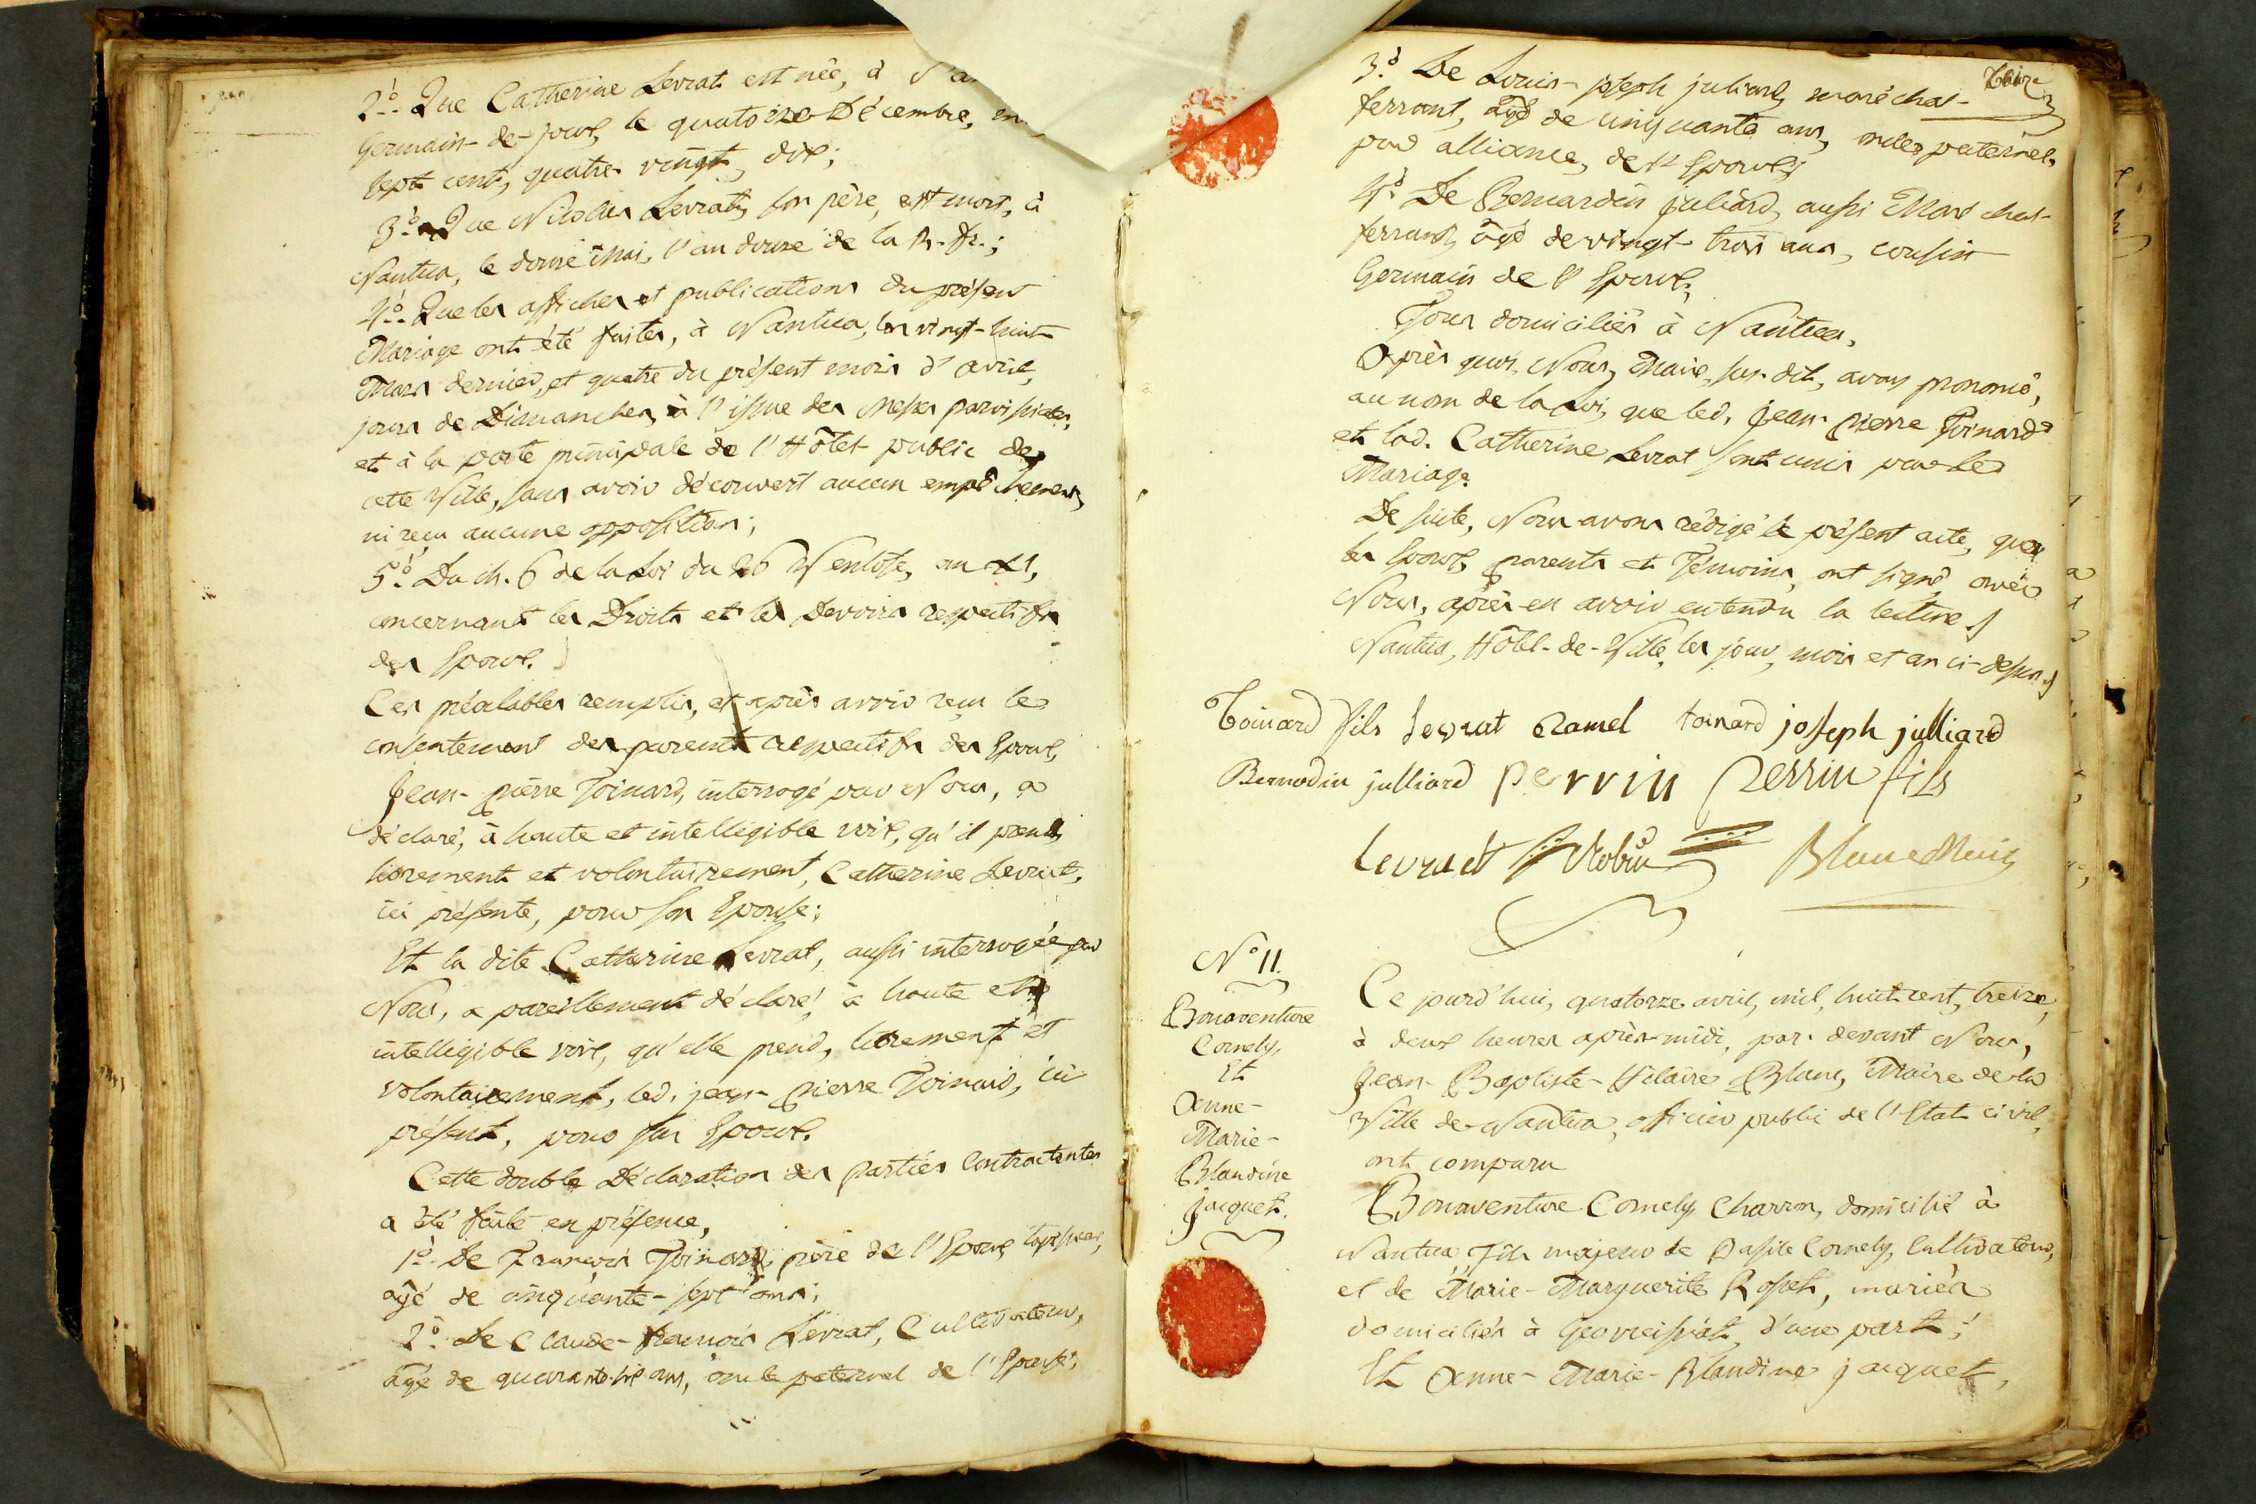 2°. Que Catherine Levrat est née, à
Germain-de-joux, le quatorze Décembre,
sept cent, quatre vingt, dix;
3°. Que Nicolas Levrat, son père, est mort, à
Nantua, le douze Mai, l'an douze de la R. fr.;
4°. Que les affiches et publications du présent
Mariage ont été faites, à Nantua, les vingt-huit
Mars dernier, et quatre du présent mois d'avril,
jours de Dimanches, à l'issue des Messes paroissiales,
et à la porte principale de l'Hôtel public de
cette Ville, sans avoir découvert aucun empêchement,
ni reçu aucune opposition;
5°. Du ch. 6 de la Loi du 26 Ventose, an XI,
concernant les Droits et les Devoirs respectifs
des Epoux.
Ces préalables remplis, et après avoir reçu le
consentement des parents respectifs des Epoux,
Jean-Pierre Toinard, interrogé par Nous, a
déclaré, à haute et intelligible voix, qu'il prend,
librement et volontairement, Catherine Levrat,
ici présente, pour son Epouse;
Et la dite Catherine Levrat, aussi interrogée par
Nous, a pareillement déclaré, à haute et
intelligible voix, qu'elle prend, librement et
volontairement, led. jean-Pierre Toinard, ici
présent, pour son Epoux.
Cette double Déclaration des parties Contractantes
a été faite en présence,
1°. De François Toinard, père de l'Epoux,
âgé de cinquante-sept ans;
2°. De Claude-François Levrat, Cultivateur,
âgé de quarante-six ans, oncle paternel de l'Epouse;
3°. De Louis-joseph juliard, maréchal-
ferrant, âgé de cinquante ans, oncle paternel,
par alliance, de l'Epoux;
4°. De Bernardin juliard, aussi Maréchal-
ferrant, âgé de vingt-trois ans, cousin
Germain de l'Epoux;
Tous domiciliés à Nantua.
Après quoi, Nous, Maire, sus-dit, avons prononcé,
au nom de la Loi, que led. Jean-Pierre Toinard
et lad. Catherine Levrat sont unis par le
Mariage.
De suite, Nous avons rédigé le présent acte, que
les Epoux, parents et Témoins, ont signé avec
Nous, après en avoir entendu la lecture.
Nantua, Hôtel-de-Ville, les jour, mois et an ci-dessus.
Toinard fils Levrat Ramel toinard joseph julliard
Bernadin julliard perrin Perrin fils
Levrat Robin Blanc Maire
N° 11.
Bonaventure
Cornely,
Et
Anne-
Marie-
Blandine
Jacquet.
Ce jourd'hui, quatorze avril, mil, huit cent, treize,
à deux heures après-midi, par-devant Nous,
Jean-Baptiste-Hilaire Blanc, Maire de la
Ville de Nantua, officier public de l'Etat civil,
ont comparu
Bonaventure Cornely, Charron, domicilié à
Nantua, fils majeur de Basile Cornely, Cultivateur,
et de Marie-Marguerite Rosset, mariés
domiciliés à Geovreissiat, d'une part;
Et Anne-Marie-Blandine jacquet,